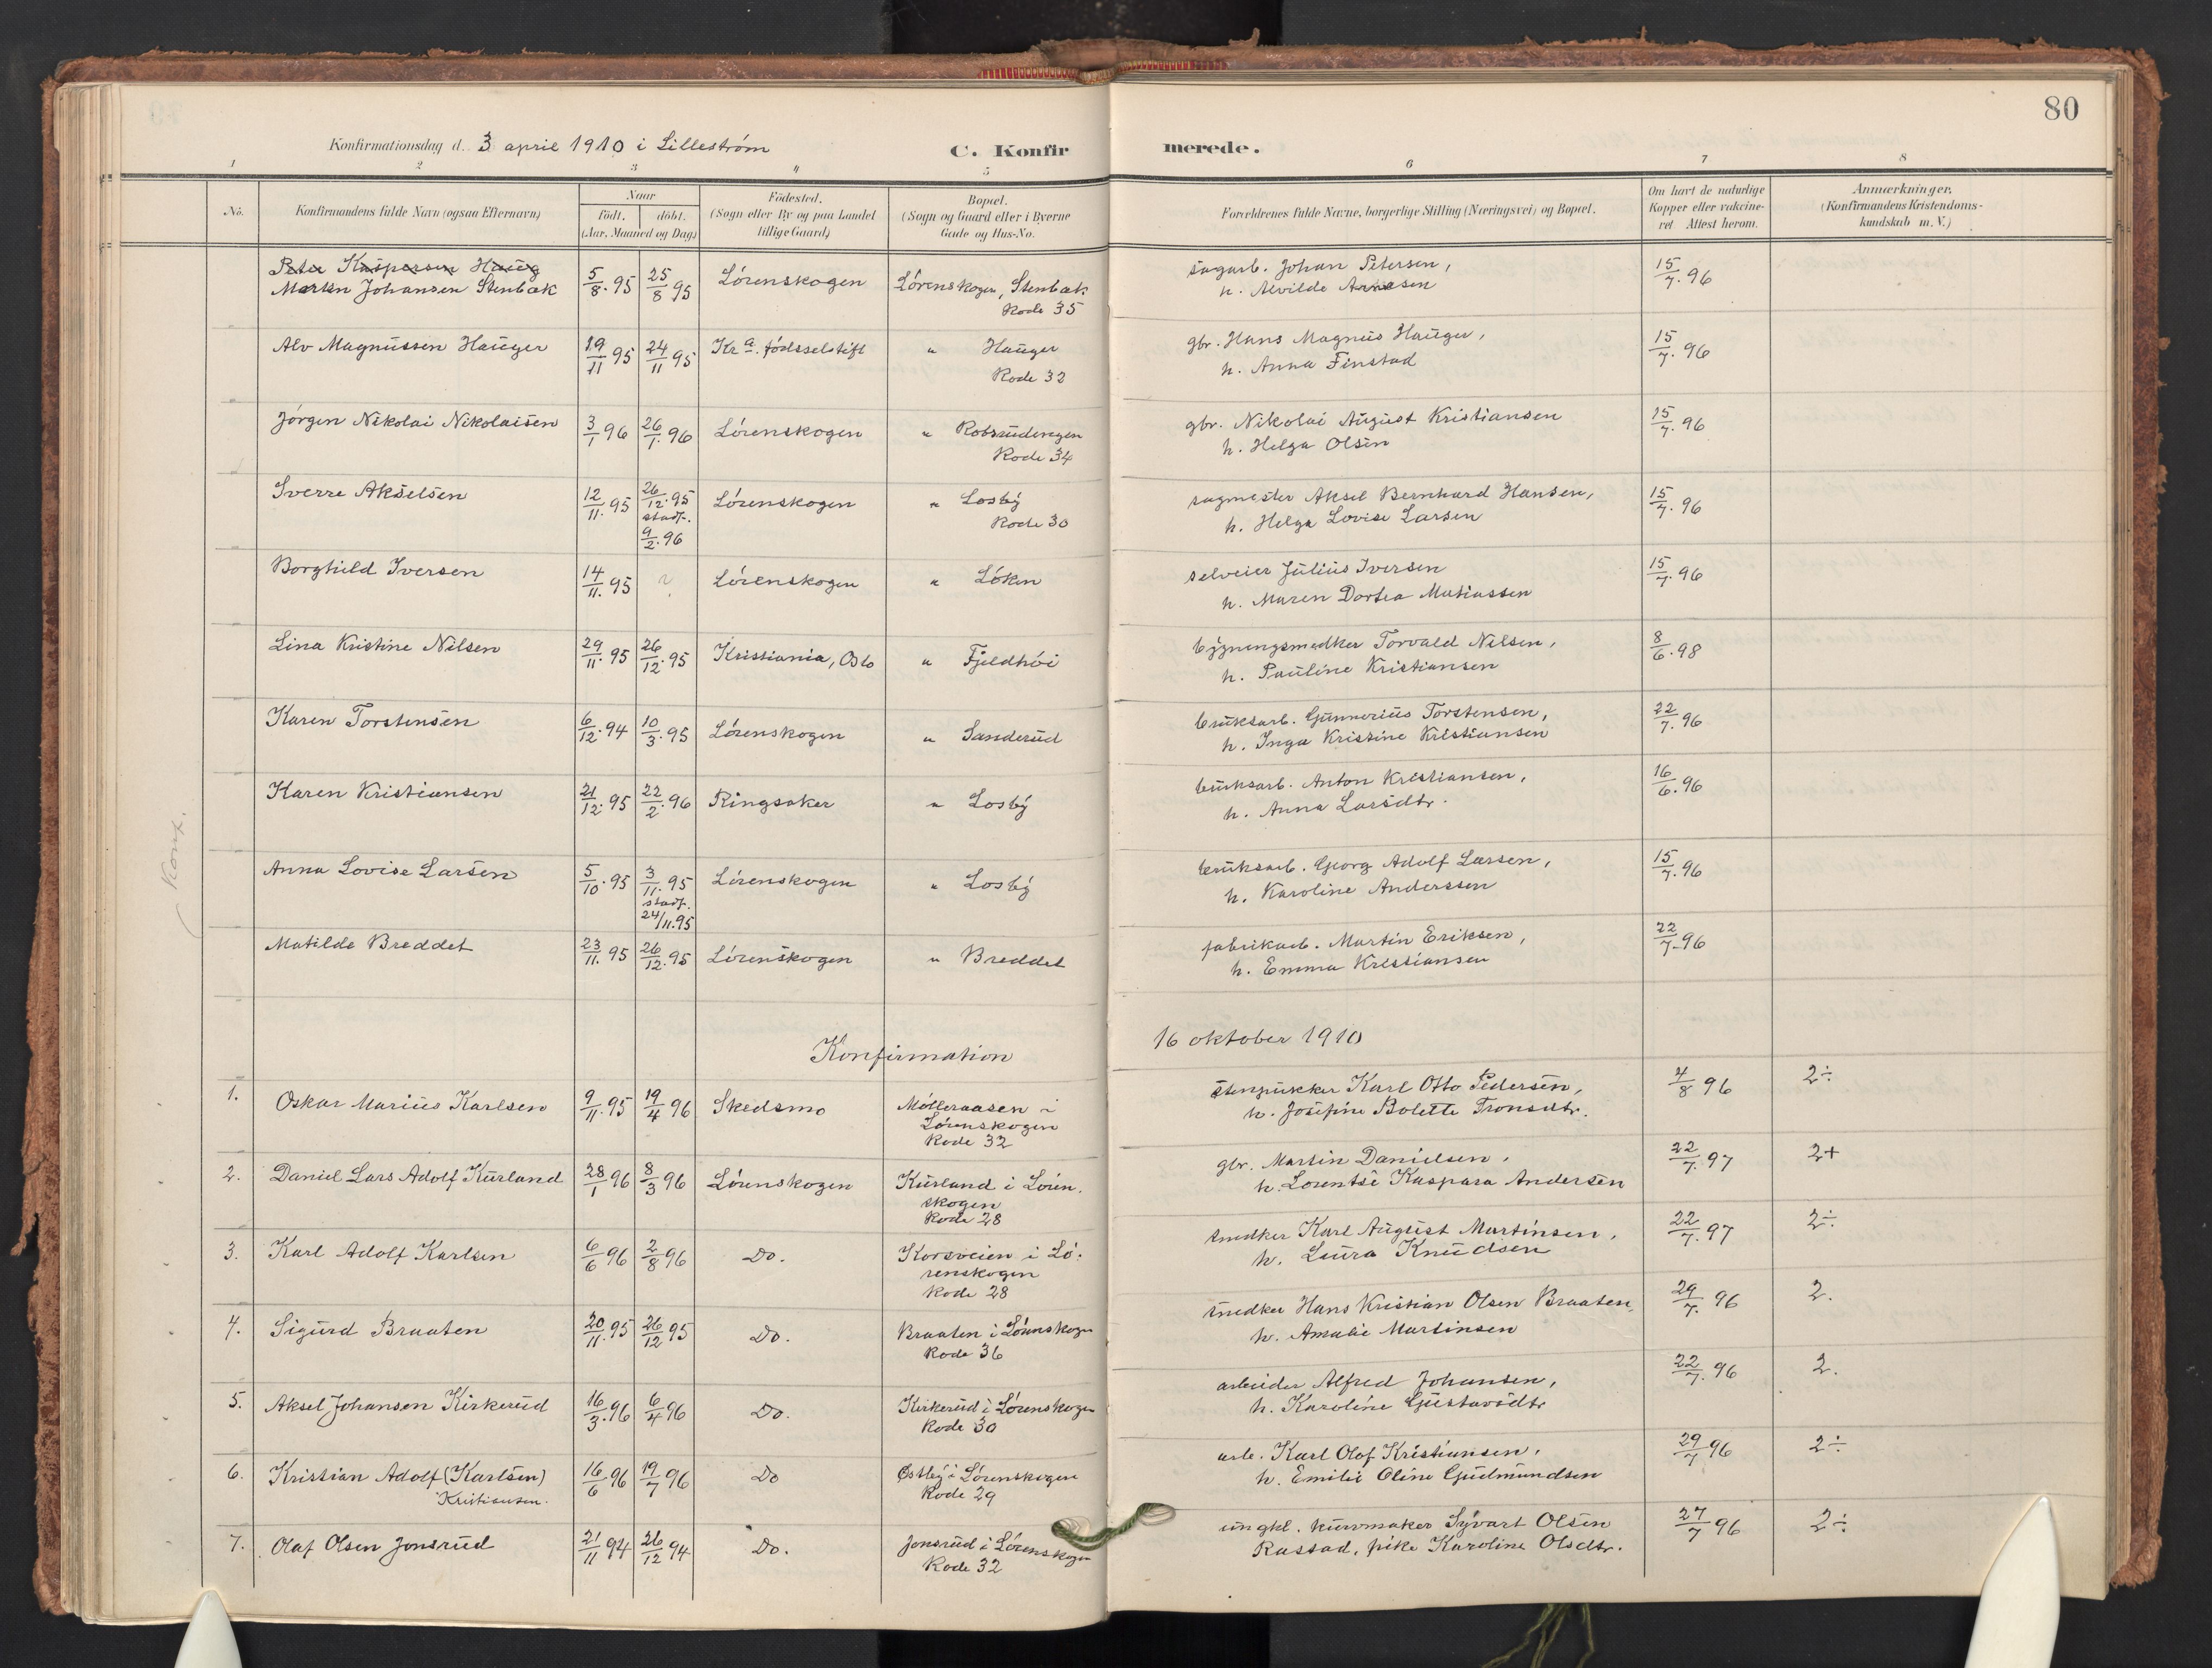 80
Konfirmationsdag d. 3 april 1910 i Lilleström
C. Konfirmerede.
1 2 3 4 5 6 7 8
No. Konfirmandens fulde Navn (ogsaa Efternavn) Naar födt. döbt. (Aar, Maaned og Dag) Födested. (Sogn eller By og paa Landet tillige Gaard) Bopæl. (Sogn og Gaard eller i Byerne Gade og Hus-No. Forældrenes fulde Navne, borgerlige Stilling (Næringsvei) og Bopæl. Om havt de naturlige Kopper eller vakcineret. Attest herom. Anmærkninger. (Konfirmandens Kristendomskundskab m. V.)
Peter Kaspersen Haug
Martin Johansen Stenbæk 5/8. 95 25/8 95 Lörenskogen Lörenskogen, Stenbæk Rode 35 sagarb. Johan Petersen, 15/7. 96
h. Alvilde Arnesen
Alv Magnussen Hauger 19/11 95 24/11 95 Kra. födselstift " Hauger Rode 32 gbr. Hans Magnus Hauger, 15/7. 96
h. Anna Finstad
Jörgen Nikolai Nikolaisen 3/1 96 26/1. 96 Lörenskogen " Robsrudengen Rode 34 gbr. Nikolai August Kristiansen 15/7. 96
h. Helga Olsen
Sverre Akselsen 12/11. 95 26/12. 95 stadf. 9/2. 96 Lörenskogen " Losby Rode 30 sagmester Aksel Bernhard Hansen, 15/7. 96
h. Helga Lovise Larsen
Borghild Iversen 14/11. 95 ? Lörenskogen " Löken selveier Julius Iversen 15/7. 96
h. Maren Dortea Matiassen
Lina Kristine Nilsen 29/11. 95 26/12. 95 Kristiania, Oslo " Fjeldhöi bygningssnedker Torvald Nilsen, 8/6. 98
h. Pauline Kristiansen
Karen Torstensen 6/12. 94 10/3. 95 Lörenskogen " Sanderud bruksarb. Gunnerius Torstensen, 22/7. 96
h. Inga Kristine Kristiansen
Karen Kristiansen 21/12. 95 22/2. 96 Ringsaker " Losby bruksarb. Anton Kristiansen, 16/6. 96
h. Anna Larsdtr.
Konf.
Anna Lovise Larsen 5/10. 95 3/11. 95 stadf. 24/11.95 Lörenskogen " Losby bruksarb. Georg Adolf Larsen, 15/7. 96
h. Karoline Anderssen
Matilde Breddet 23/11. 95 26/12. 95 Lörenskogen " Breddet fabrikarb. Martin Eriksen, 22/7. 96
h. Emma Kristiansen
Konfirmation 16 oktober 1910
1. Oskar Marius Karlsen 9/11. 95 19/4 96 Skedsmo Mölleraasen i Lörenskogen Rode 32 stenpukker Karl Otto Pedersen, 4/8 96 2÷
h. Josefine Bolette Tronsdtr.
2. Daniel Lars Adolf Kurland 28/1 96 8/3 96 Lörenskogen Kurland i Lörenskogen Rode 28 gbr. Martin Danielsen, 22/7. 97 2+
h. Lorentse Kaspara Andersen
3. Karl Adolf Karlsen 6/6 96 2/8 96 Do. Korsveien i Lörenskogen Rode 28 snedker Karl August Martinsen, 22/7. 97 2÷
h. Laura Knudsen
4. Sigurd Braaten 20/11. 95 26/12 95 Do. Braaten i Lörenskogen Rode 36 snedker Hans Kristian Olsen Braaten, 29/7. 96 2.
h. Amalie Martinsen
5. Aksel Johansen Kirkerud 16/3. 96 6/4 96 Do. Kirkerud i Lörenskogen Rode 30 arbeider Alfred Johansen, 22/7. 96 2.
h. Karoline Gustavsdtr
6. Kristian Adolf (Karlsen) Kristiansen. 16/6 96 19/7 96 Do Østby i Lörenskogen Rode 29 arb. Karl Olof Kristiansen, 29/7 96 2÷
h. Emilie Oline Gudmundsen
7. Olaf Olsen Jonsrud 21/11 94 26/12 94 Do. Jonsrud i Lörenskogen Rode 32 ungkl. kurvmaker Syvart Olsen 27/7 96 2÷
Rustad, pike Karoline Olsdtr.